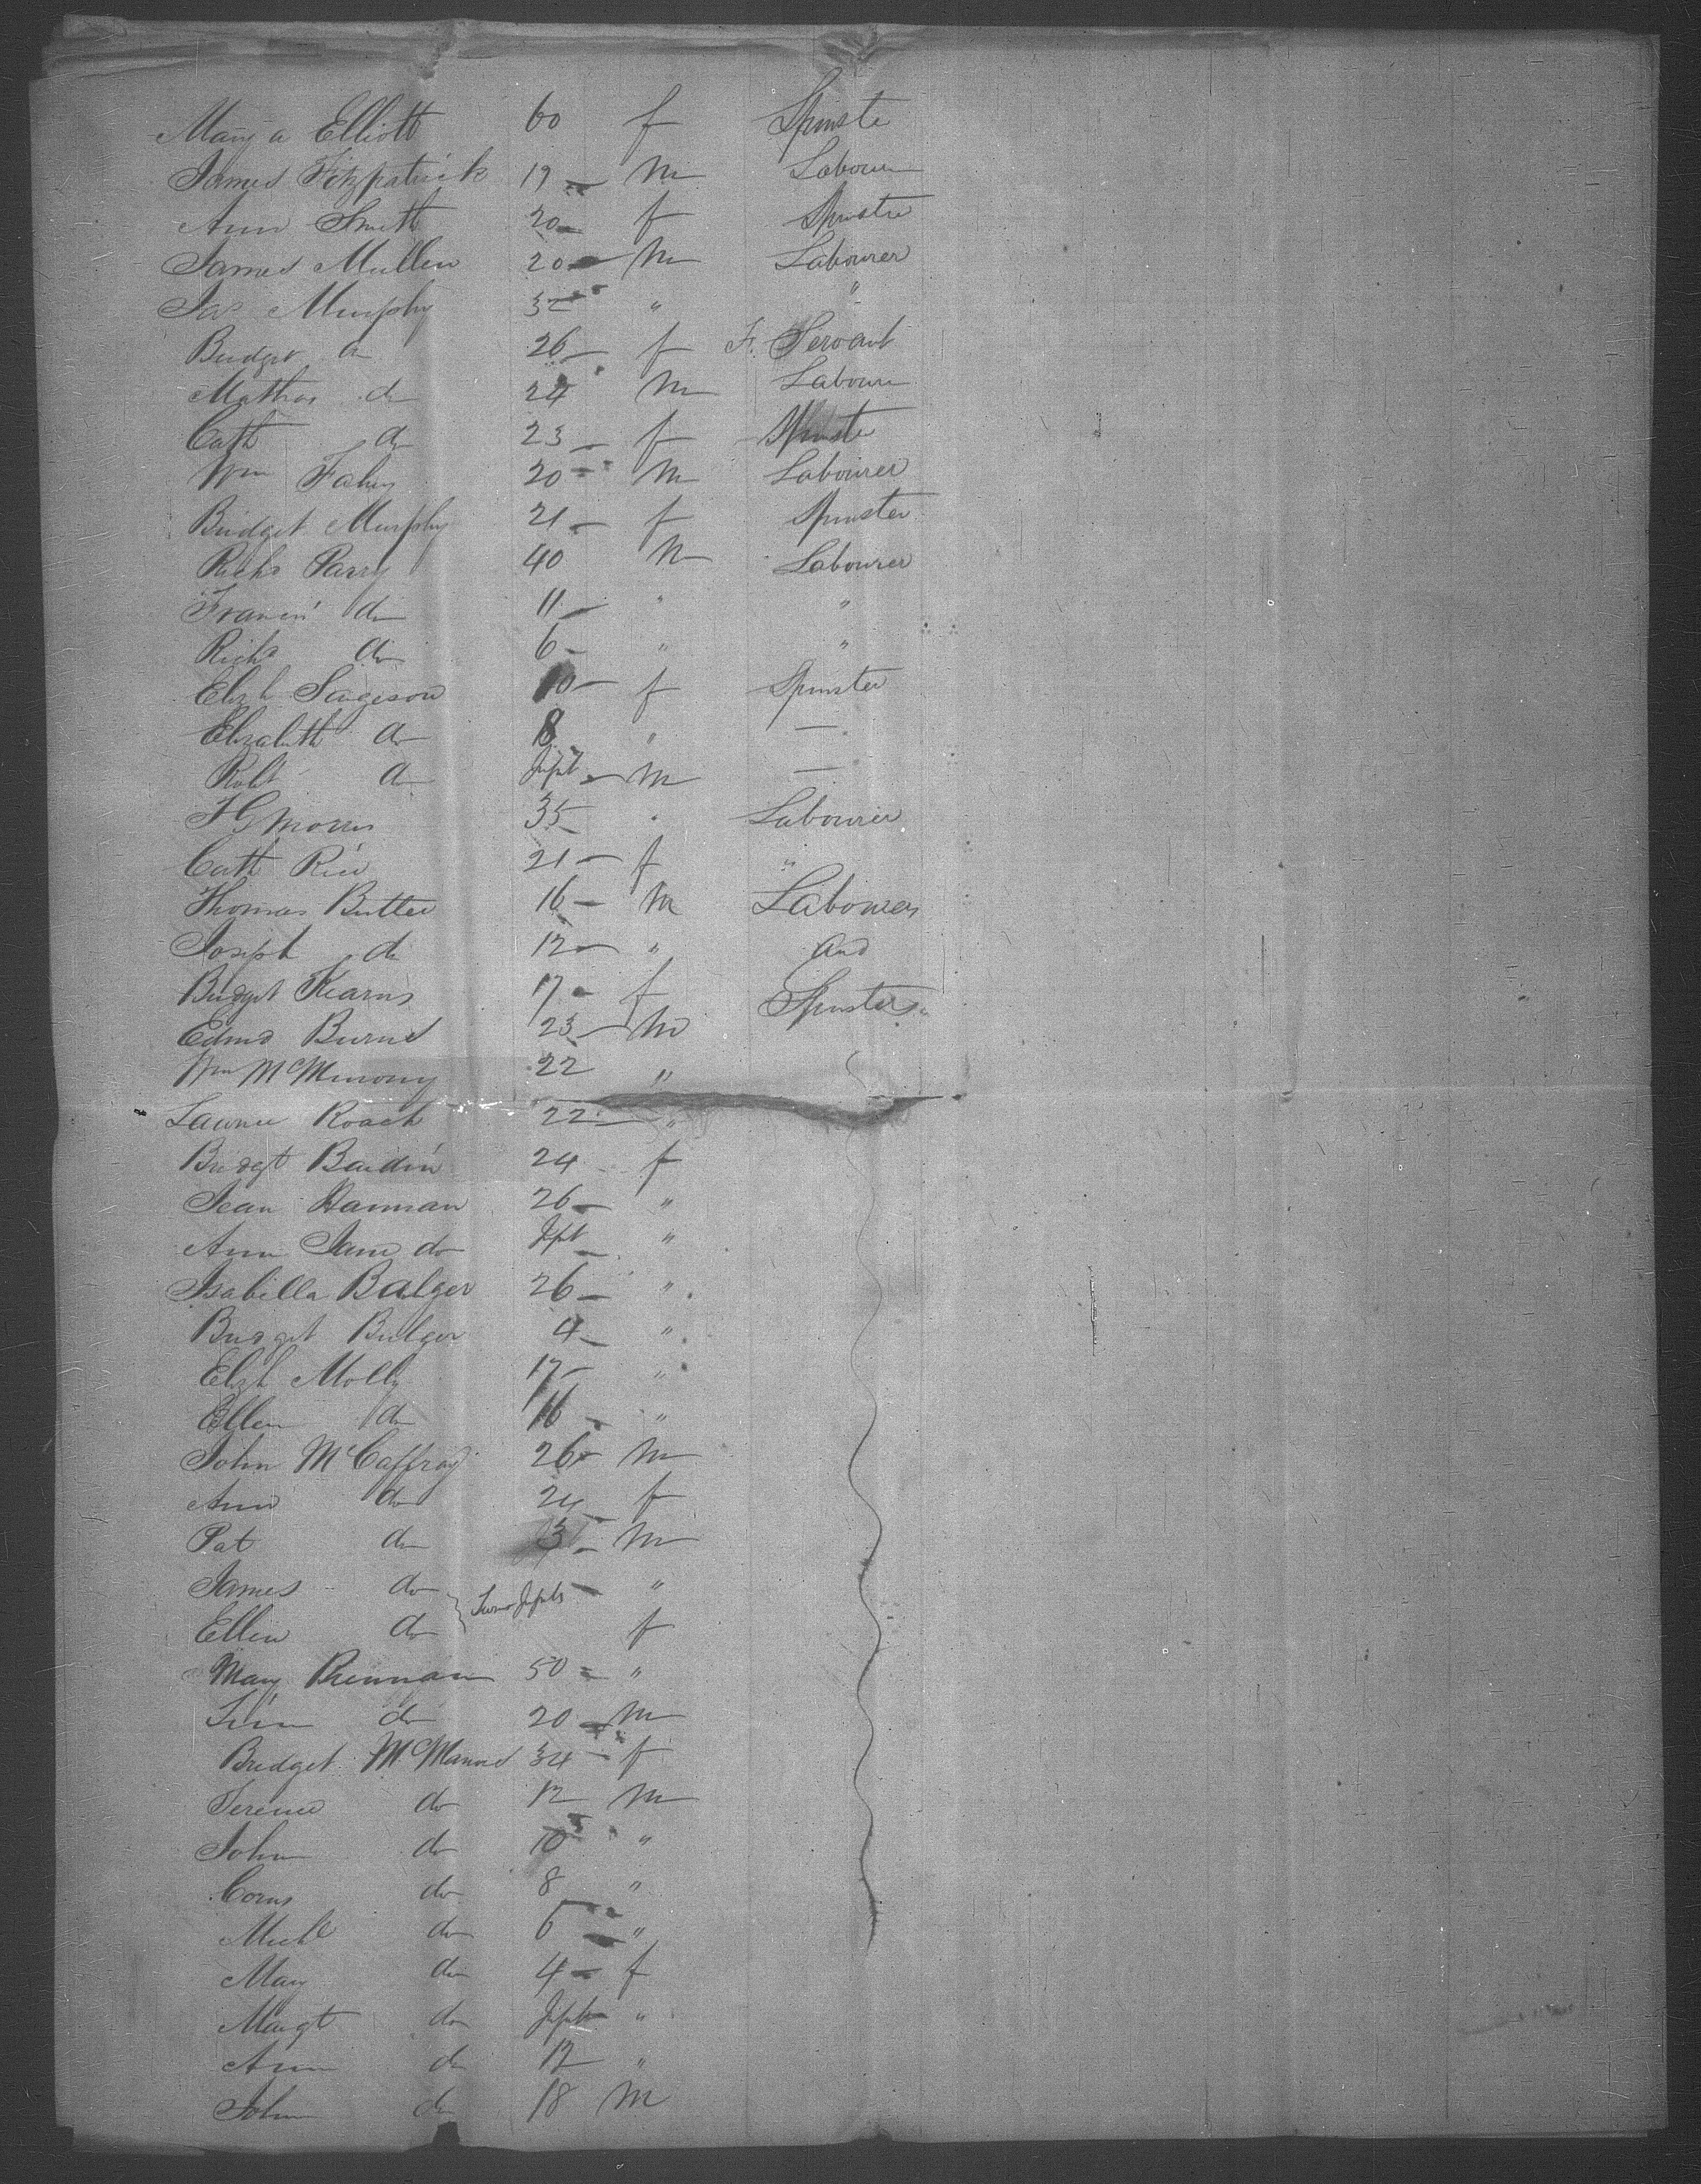 Mary a Elliott 60 f Spinste
James Fitzpatrick 19 M Labourer
Ann Smith 20 f Spinster
James Mullen 20 M Labourer
Jas Murphy 32 " "
Bridget do 26 f F. Servant
Mathias do 24 M Labourer
Cath do 23 f Spinster
Wm Fahey 20 M Labourer
Bridget Murphy 21 f Spinster
Richd Parry 40 M Labourer
Francis do 11 " "
Richd do 6 " "
Elizh Sargeson f Spinster
Elizabeth do 8 " —
Robt do Inft M —
H G Morris 35 " Labourer
Cath Rice 21 f "
Thomas Butler 16 M Labourers
Joseph do 12 " and
Bridget Kearns 17 f Spinsters
Edmd Burns 23 M
Wm 22 "
Roach 22 "
Bridgt 24 f
Jean Hannan 26 "
Ann Jane do Inft "
Isabella Balger 26 "
Bridget Bulger 4 "
Elizh Molly 17 "
Ellen do 16 "
John McCaffray 26 M
Ann do 24 f
Pat do 3 M
James do Infts "
Ellen do f
Mary Brennan 50 "
do 20 M
Bridget McManus 34 f
Terence do 12 M
John do 10 "
Corns do 8 "
Michl do 6 "
Mary do 4 f
Margt do Inft "
Ann do 12 "
John do 18 M